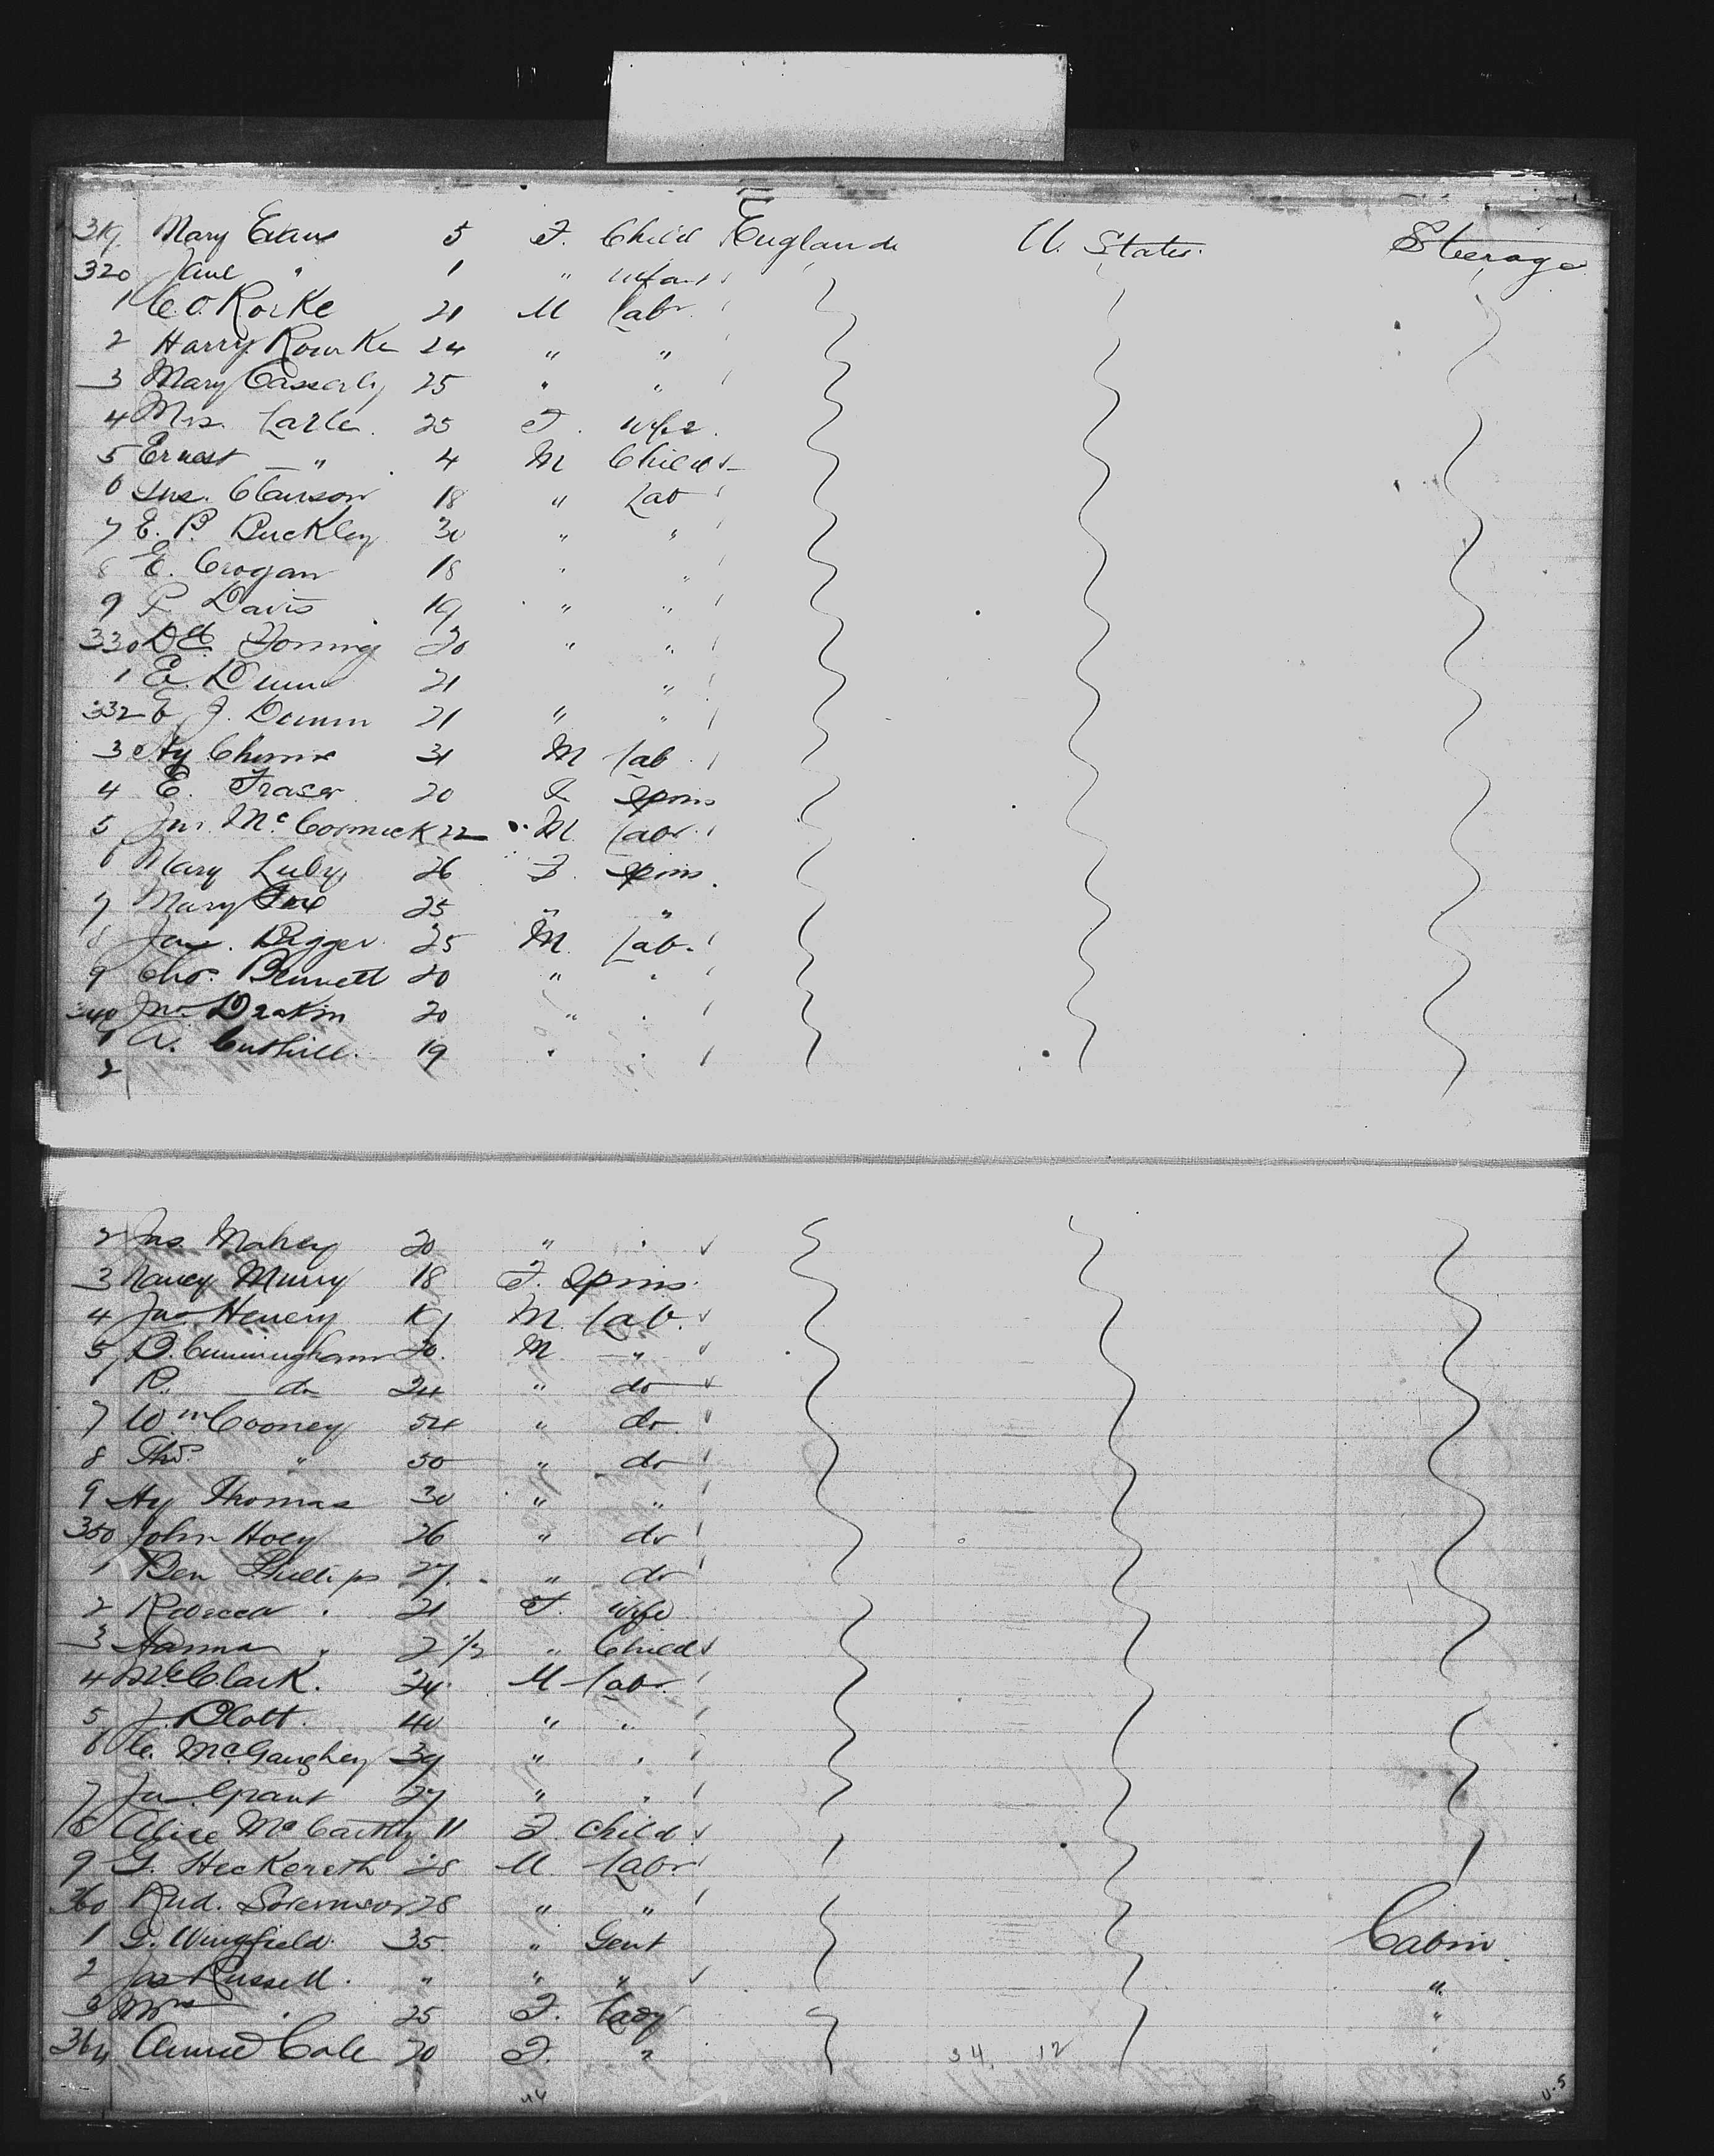 319. Mary Evans 5 F. Child England U. States. Steerage
320 Jane " 1 " infant
1 C. O. Rorke 21 M labr.
2 Harry Rourke 24 " "
3 Mary Casserly 25 " "
4 Mrs. Earle. 25 F. wife.
5 Ernest — " 4 M Child
6 Jas. Clauson 18 " Lab
7 E. P. Buckley 30 " "
8 E. Crogan 18 " "
9 P. Davis 19 " "
330 20 " "
1 E. Dunn 21 "
332 E J. Dunn 21 " "
3 Hy 31 M lab.
4 E. Fraser 20 F. Spins
5 Jno. McCormick 22 M. labr.
6 Mary Luby 26 F. Spins.
7 Mary Fox 25 " "
8 Digger 25 M. Lab.
9 Chas. Bennett 20 " "
340 Jno. Deakin 20 " "
1 A. Cuthill. 19 " "
2
2 Jas. Mahey 20 " "
3 Nancy Murry 18 F. Spins.
4 Jno Henery 19 M. Lab.
5 D. Cunningham 20. M "
6 P. do 24 " do
7 Wm Cooney 54 " do
8 Thos. " 50 " do
9 Hy Thomas 30 " "
350 John Hoey 26 " do
1 Ben Phillips 27. " do
2 Rebecca " 21 F. wife
3 Hanna " 2 1/2 " Child
4 Clark. 24 M labr.
5 J. Blott. 40 " "
6 C. McGaughey 39 " "
7 Jno Grant 27 " "
8 Alice McCarthy 11 F. Child
9 G. Heckereth 28 M. Labr
360 Rud. Sorenson 28 " "
1 G. Wingfield. 35. " Gent Cabin.
2 Jas Russell. " " " "
3 Mrs " 25 F. Lady "
364 Annie Cole 20 F. " "
34. 12